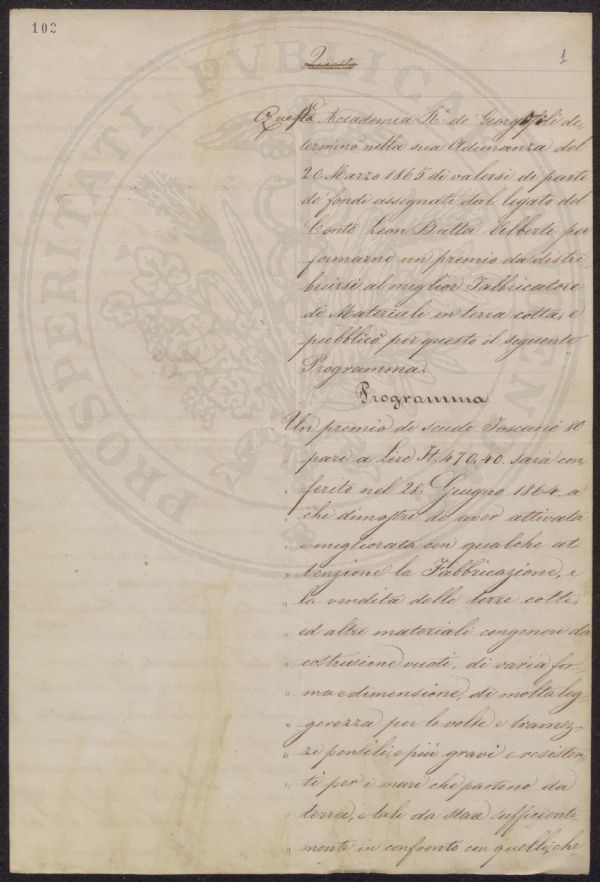 102
1
Questo
Questa Accademia R.e de' Georgofili de-
terminò nella sua Adunanza del
20 Marzo 1865 di valersi di parte
de' fondi assegnati dal legato del
Conte Leon Batta Alberti per
formarne un premio da distri-
buirsi al miglior Fabbricatore
di Materiali in terra cotta, e
pubblicò per questo il seguente
Programma.
Programma
Un premio di scudi Toscani 80
" pari a Lire It. 470,40. sarà con
" ferito nel 25. Giugno 1864. a
" chi dimostri di aver attivata
" e migliorata con qualche at
" tenzione la Fabbricazione, e
" la vendita delle terre cotte,
" ed altri materiali congeneri da
" costruzione vuoti, di varia for
" ma e dimensione, di molta leg
" gerezza per le volte e tramez-
" zi pensili, e più gravi e resisten-
" ti per i muri che partono da
" terra, e tali da stare sufficiente-
" mente in confronto con quelli, che
PROSPERITATI PUBLICAE